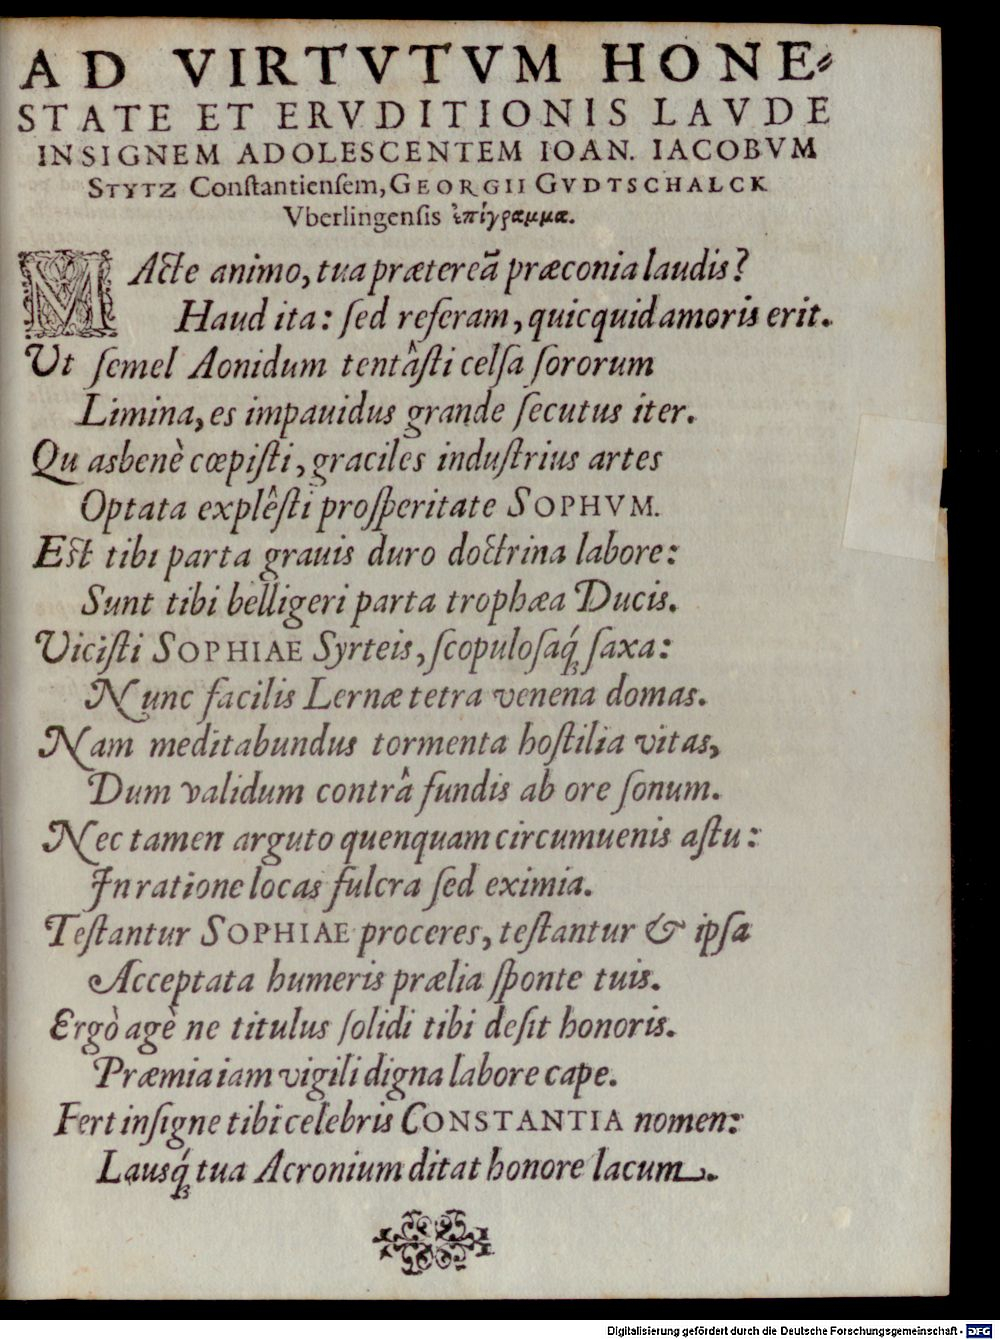 AD VIRTVTVM HONE⸗
STATE ET ERVDITIONIS LAVDE
INSIGNEM ADOLESCENTEM IOAN. IACOBVM
STYTZ Conſtantienſem, GEORGII GVDTSCHALCK
Vberlingenſis ἐπίγραμμα.
MActe animo, tua præthereã præconia laudis?
Haud ita: ſed referam, quicquid amoris erit.
Ut ſemel Aonidum tentâſti celſa ſororum
Limina, es impauidus grande ſecutus iter.
Quasbenè cœpiſti, graciles induſtrius artes
Optata explêſti proſperitate SOPHVM.
Eſt tibi parta grauis duro doctrina labore:
Sunt tibi belligeri parta trophæa Ducis.
Viciſti SOPHIAE Syrteis, ſcopuloſaq́; ſaxa:
Nunc facilis Lernæ tetra venena domas.
Nam meditabundus tormenta hoſtilia vitas,
Dum validum contrâ fundis ab ore ſonum.
Nec tamen arguto quenquam circumuenis aſtu:
In ratione locas fulcra ſed eximia.
Teſtantur SOPHIAE proceres, teſtantur & ipſa
Acceptata humeris prælia ſponte tuis.
Ergò agè ne titulus ſolidi tibi deſit honoris.
Præmia iam vigili digna labore cape.
Fert inſigne tibi celebris CONSTANTIA nomen:
Lausq́; tua Acronium ditat honore lacum.
Digitalisierung gefördert durch die Deutsche Forschungsgemeinschaft - DFG